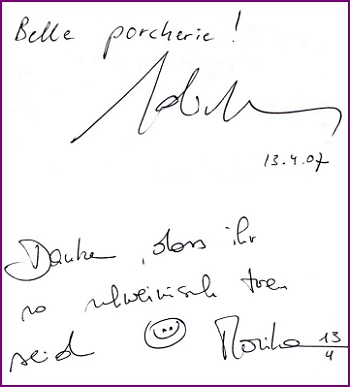 Belle porcherie !
13.4.07
Danke, dass ihr
so schweinisch treu
seid Monika 13
4